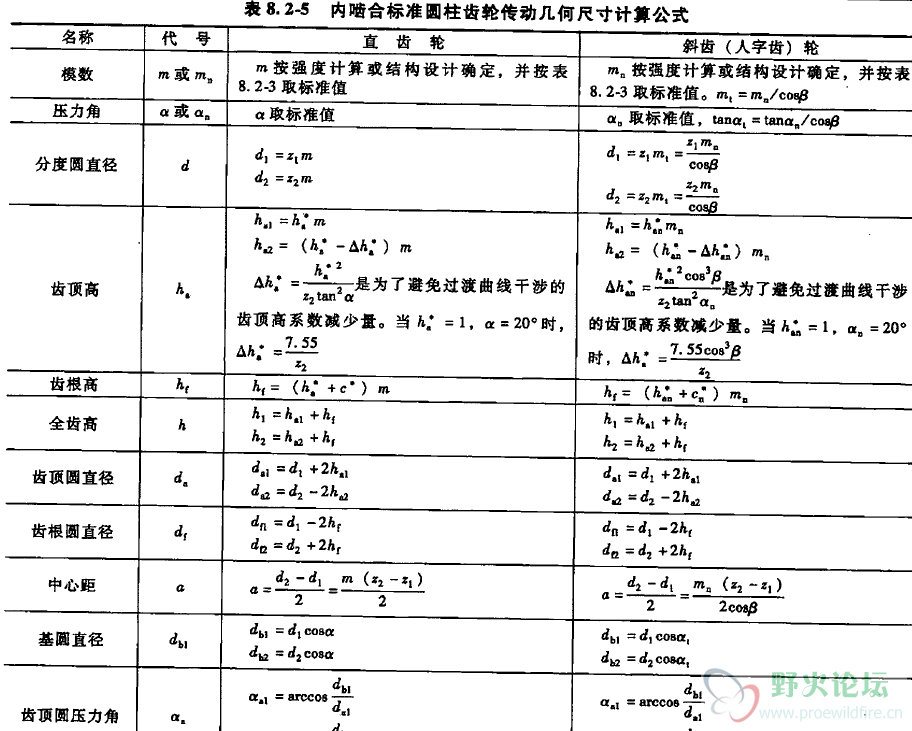 表 8.2-5 内啮合标准圆柱齿轮传动几何尺寸计算公式
名称 代 号 直 齿 轮 斜齿（人字齿）轮
模数 m 或 mₙ m 按强度计算或结构设计确定，并按表 8.2-3 取标准值 mₙ 按强度计算或结构设计确定，并按表 8.2-3 取标准值。mₜ = mₙ/cosβ
压力角 α 或 αₙ α 取标准值 αₙ 取标准值，tanαₜ = tanαₙ/cosβ
分度圆直径 d d₁ = z₁m d₁ = z₁mₜ = z₁mₙ/cosβ
d₂ = z₂m d₂ = z₂mₜ = z₂mₙ/cosβ
齿顶高 hₐ hₐ₁ = hₐ* m hₐ₁ = hₐₙ* mₙ
hₐ₂ = （hₐ* - Δhₐ*）m hₐ₂ = （hₐₙ* - Δhₐₙ*）mₙ
Δhₐ* = hₐ*²/z₂tan²α 是为了避免过渡曲线干涉的 Δhₐₙ* = hₐₙ*²cos³β/z₂tan²αₙ 是为了避免过渡曲线干涉
齿顶高系数减少量。当 hₐ* = 1，α = 20° 时， 的齿顶高系数减少量。当 hₐₙ* = 1，αₙ = 20°
Δhₐ* = 7.55/z₂ 时，Δhₐ* = 7.55cos³β/z₂
齿根高 h_f h_f = （hₐ* + c*）m h_f = （hₐₙ* + cₙ*）mₙ
全齿高 h h₁ = hₐ₁ + h_f h₁ = hₐ₁ + h_f
h₂ = hₐ₂ + h_f h₂ = hₐ₂ + h_f
齿顶圆直径 dₐ dₐ₁ = d₁ + 2hₐ₁ dₐ₁ = d₁ + 2hₐ₁
dₐ₂ = d₂ - 2hₐ₂ dₐ₂ = d₂ - 2hₐ₂
齿根圆直径 d_f d_f1 = d₁ - 2h_f d_f1 = d₁ - 2h_f
d_f2 = d₂ + 2h_f d_f2 = d₂ + 2h_f
中心距 a a = d₂ - d₁/2 = m（z₂ - z₁）/2 a = d₂ - d₁/2 = mₙ（z₂ - z₁）/2cosβ
基圆直径 d_b1 d_b1 = d₁cosα d_b1 = d₁cosαₜ
d_b2 = d₂cosα d_b2 = d₂cosαₜ
齿顶圆压力角 αₐ αₐ₁ = arccos d_b1/dₐ₁ αₐ₁ = arccos d_b1/dₐ₁
野火论坛
www.proewildfire.cn